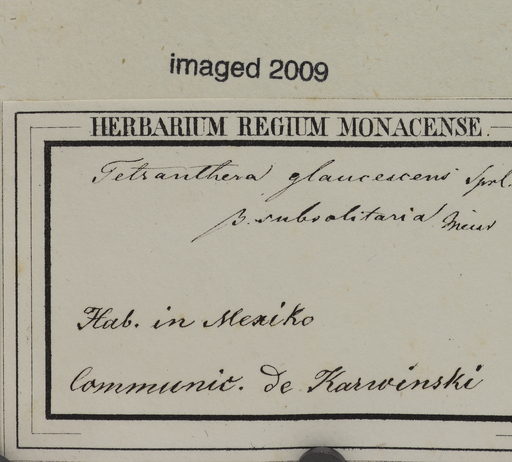 imaged 2009
HERBARIUM REGIUM MONACENSE.
Tetranthera glaucescens Sprl.
β. subsolitaria
Hab. in Mexiko
Communic. de Karwinski